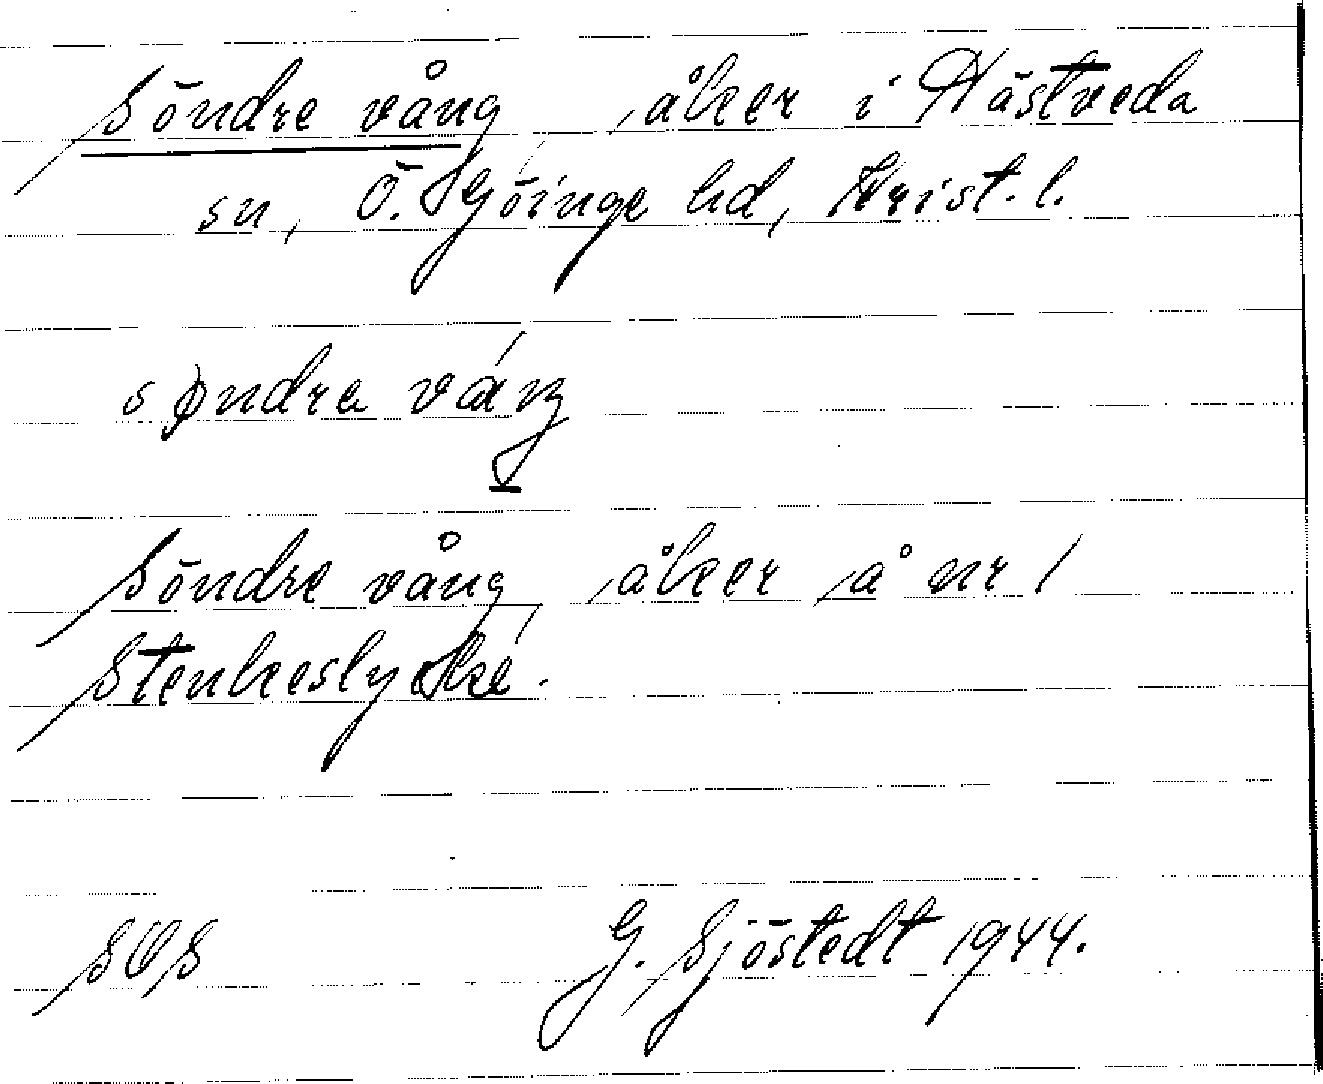 Söndre vång, åker i Hästveda
sn, Ö. Göinge hd, Krist. l.
søndra váŋ
Söndre vång, åker å nr 1
Stenkeslycke.
G. Sjöstedt 1944.